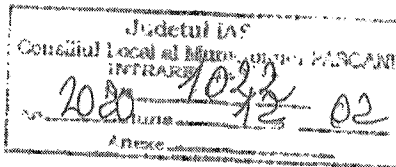 Judetul IAȘI
Consiliul Local al Municipiului PAȘCANI
INTRARE
Nr. 1022
2020 luna 02 12
Anexe